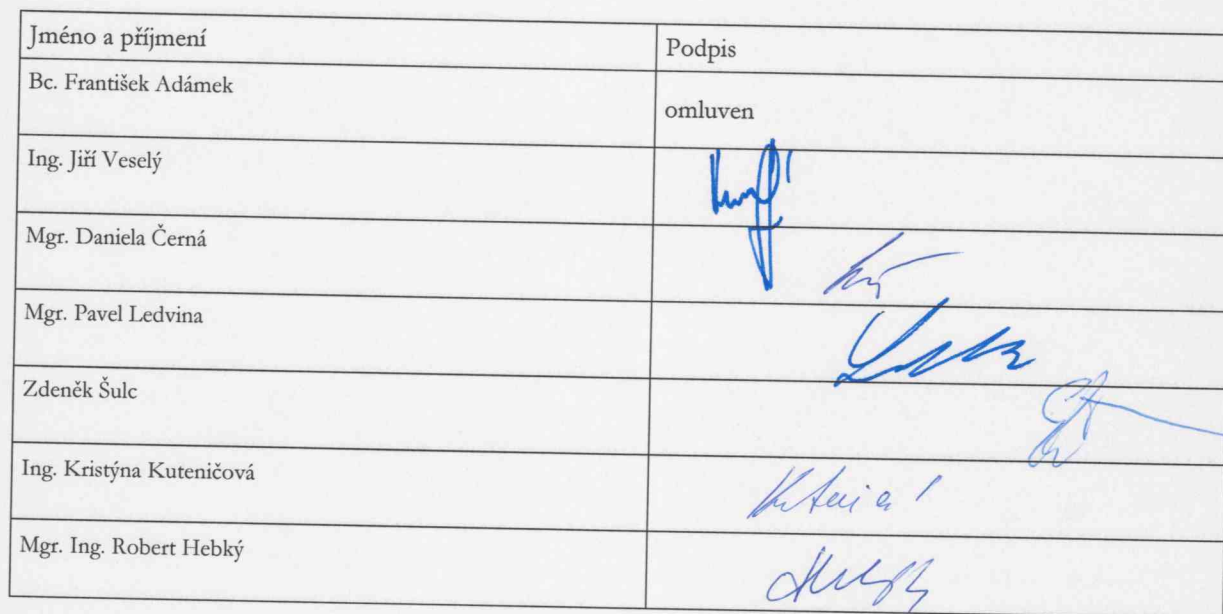 Jméno a příjmení
Podpis
Bc. František Adámek
omluven
Ing. Jiří Veselý
Mgr. Daniela Černá
Mgr. Pavel Ledvina
Zdeněk Šulc
Ing. Kristýna Kuteničová
Mgr. Ing. Robert Hebký